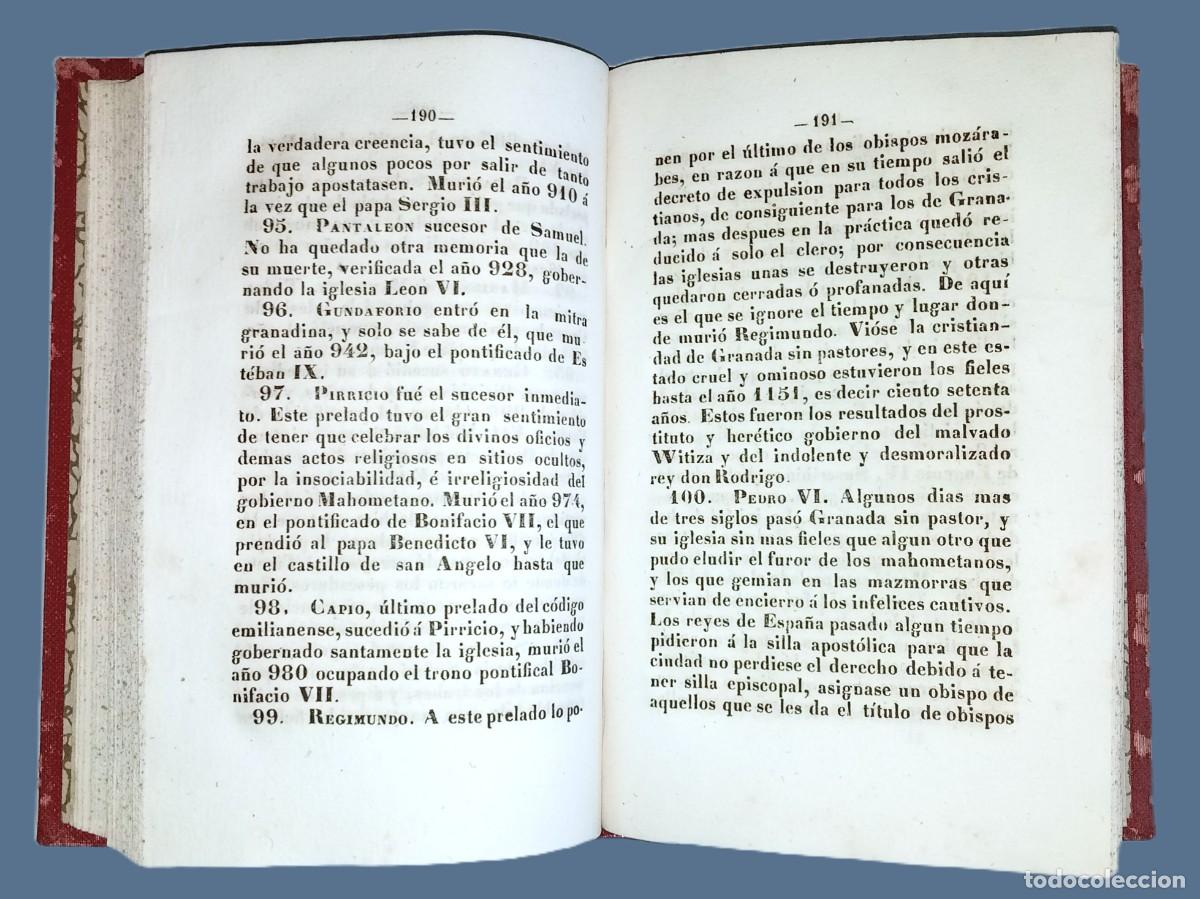 —190—
la verdadera creencia, tuvo el sentimiento
de que algunos pocos por salir de tanto
trabajo apostatasen. Murió el año 910 á
la vez que el papa Sergio III.
95. PANTALEON sucesor de Samuel.
No ha quedado otra memoria que la de
su muerte, verificada el año 928, gober-
nando la iglesia Leon VI.
96. GUNDAFORIO entró en la mitra
granadina, y solo se sabe de él, que mu-
rió el año 942, bajo el pontificado de Es
téban IX.
97. PIRRICIO fué el sucesor inmedia-
to. Este prelado tuvo el gran sentimiento
de tener que celebrar los divinos oficios y
demas actos religiosos en sitios ocultos,
por la insociabilidad, é irreligiosidad del
gobierno Mahometano. Murió el año 974,
en el pontificado de Bonifacio VII, el que
prendió al papa Benedicto VI, y le tuvo
en el castillo de san Angelo hasta que
murió.
98. CAPIO, último prelado del código
emilianense, sucedió á Pirricio, y habiendo
gobernado santamente la iglesia, murió el
año 980 ocupando el trono pontifical Bo-
nifacio VII.
99. REGIMUNDO. A este prelado lo po-
—191—
nen por el último de los obispos mozára-
bes, en razon á que en su tiempo salió el
decreto de expulsion para todos los cris-
tianos, de consiguiente para los de Grana-
da; mas despues en la práctica quedó re-
ducido á solo el clero; por consecuencia
las iglesias unas se destruyeron y otras
quedaron cerradas ó profanadas. De aquí
es el que se ignore el tiempo y lugar don-
de murió Regimundo. Vióse la cristian-
dad de Granada sin pastores, y en este es-
tado cruel y ominoso estuvieron los fieles
hasta el año 1151, es decir ciento setenta
años. Estos fueron los resultados del pros-
tituto y herético gobierno del malvado
Witiza y del indolente y desmoralizado
rey don Rodrigo.
100. PEDRO VI. Algunos dias mas
de tres siglos pasó Granada sin pastor, y
su iglesia sin mas fieles que algun otro que
pudo eludir el furor de los mahometanos,
y los que gemian en las mazmorras que
servian de encierro á los infelices cautivos.
Los reyes de España pasado algun tiempo
pidieron á la silla apostólica para que la
ciudad no perdiese el derecho debido á te-
ner silla episcopal, asignase un obispo de
aquellos que se les da el título de obispos
todocoleccion